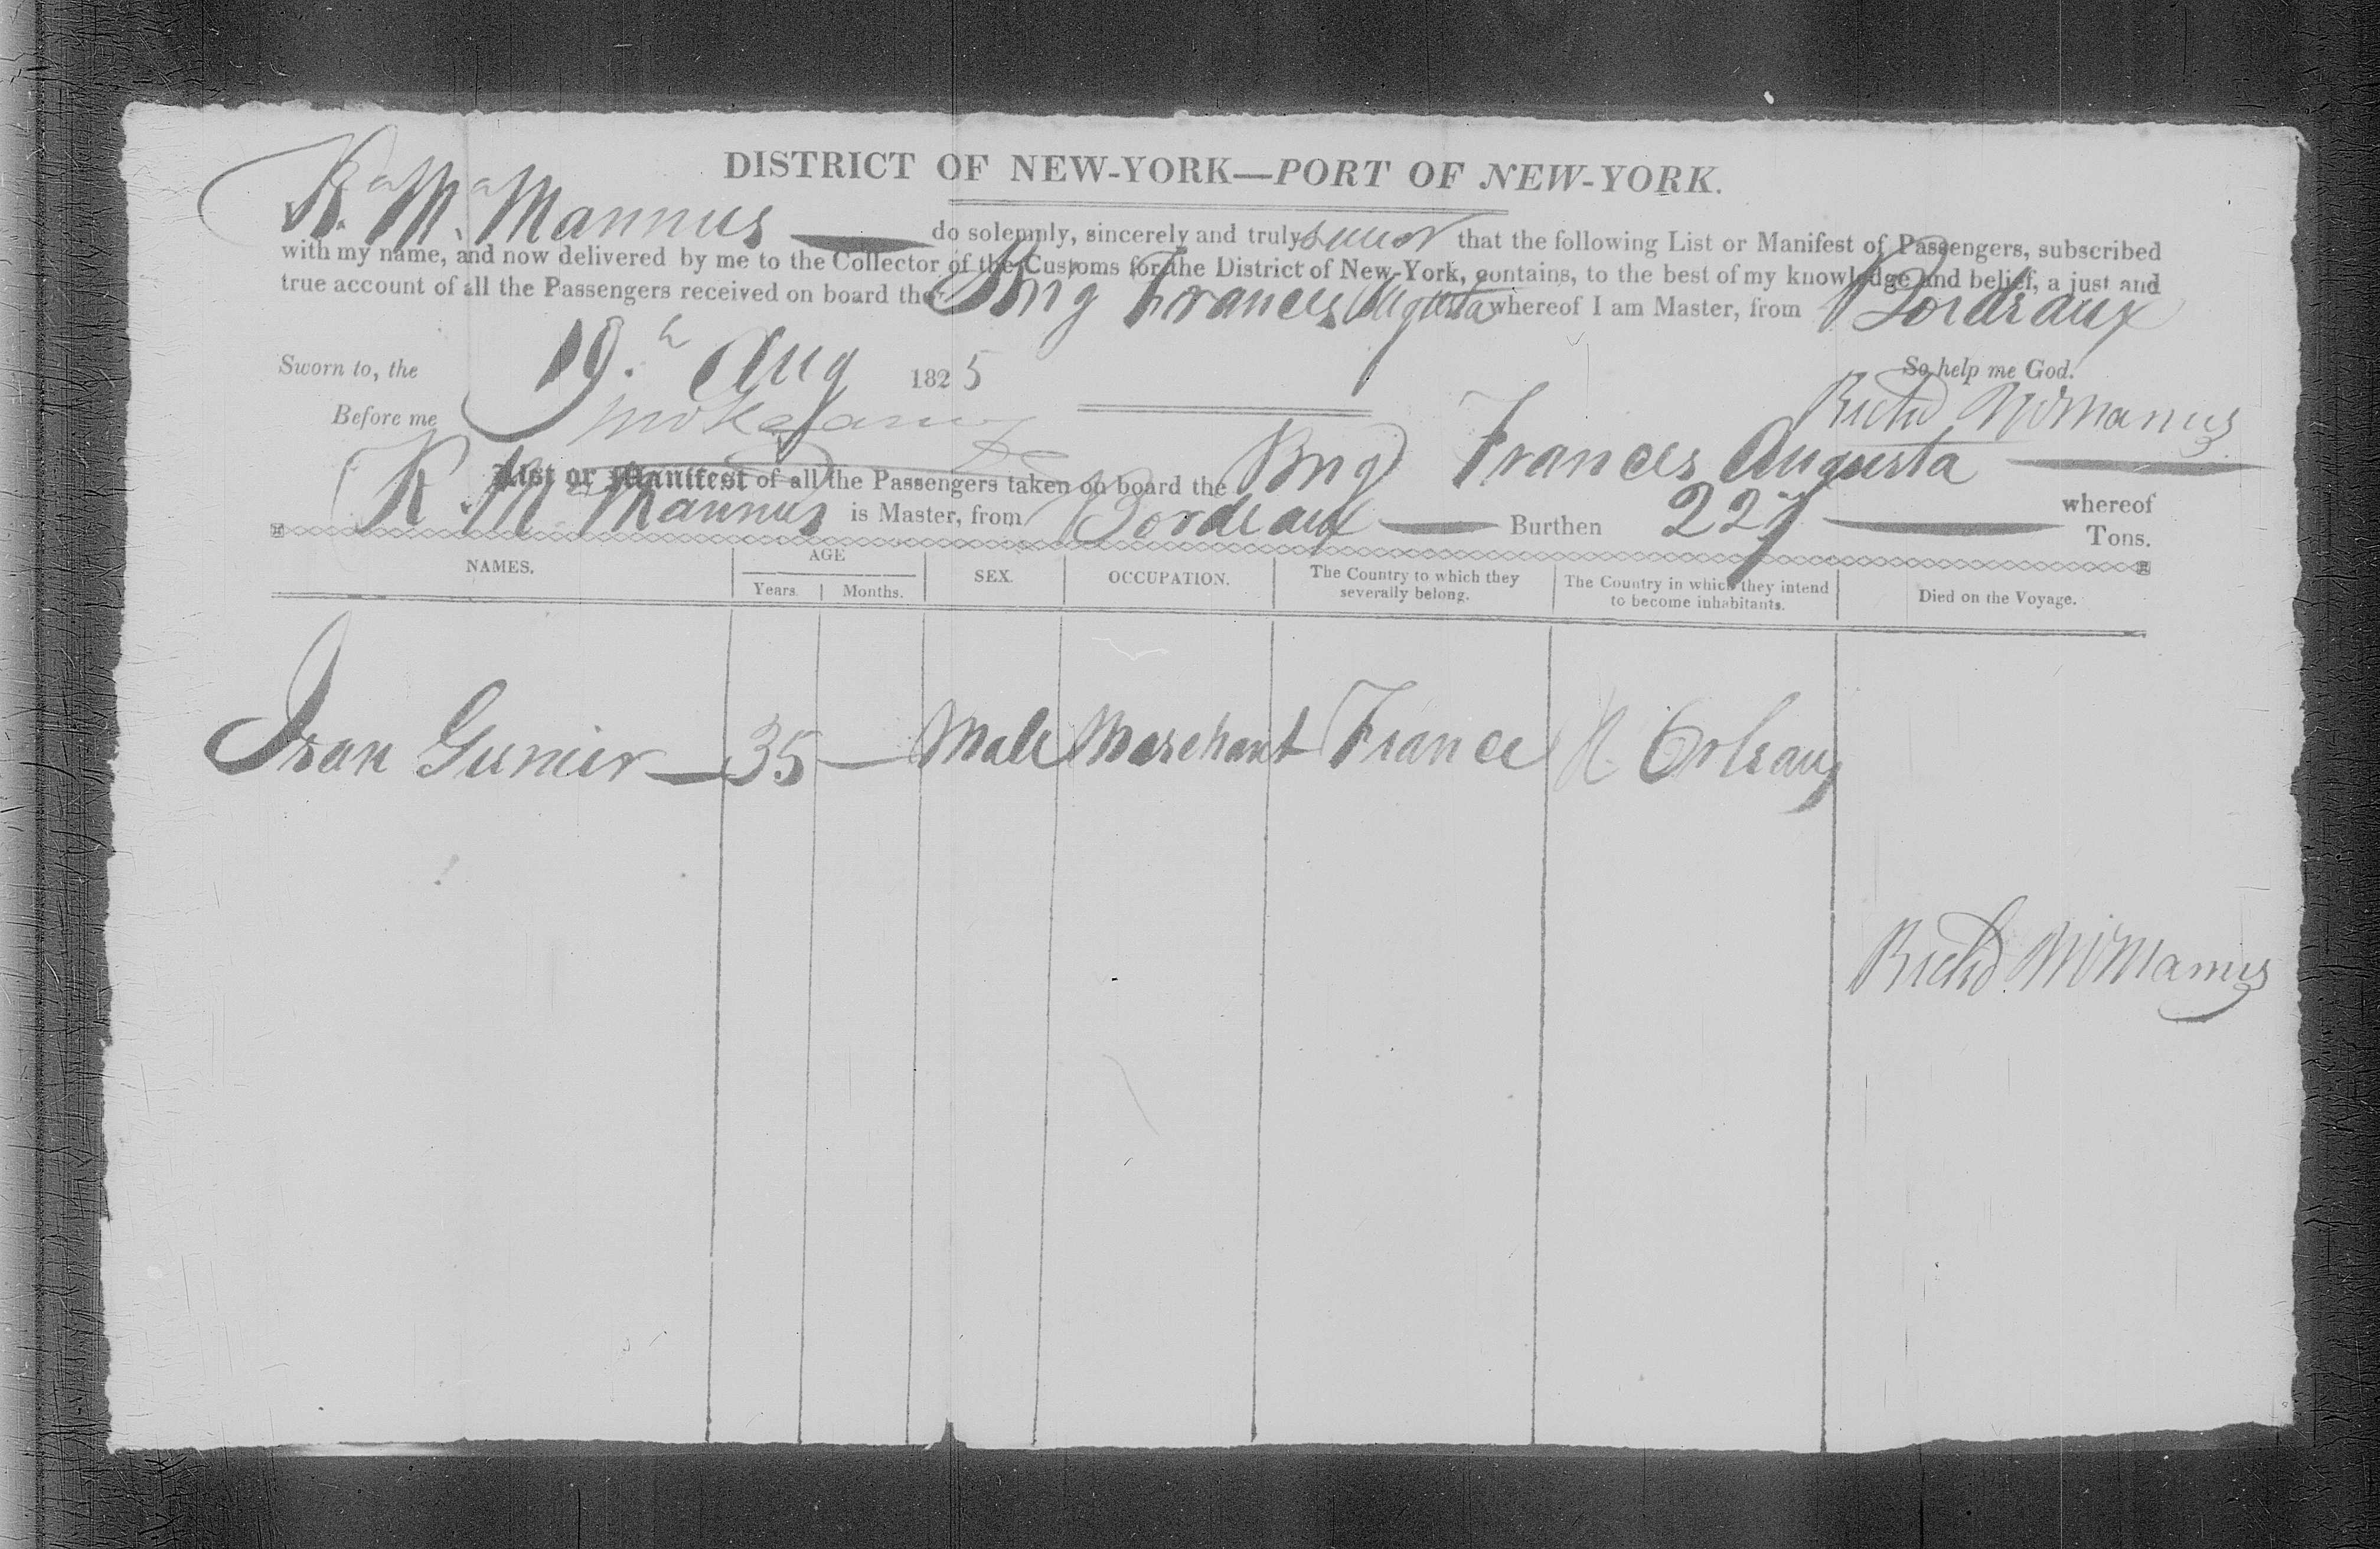 DISTRICT OF NEW-YORK—PORT OF NEW-YORK.
R. M. Mannus do solemnly, sincerely and truly swear that the following List or Manifest of Passengers, subscribed
with my name, and now delivered by me to the Collector of the Customs for the District of New-York, contains, to the best of my knowledge and belief, a just and
true account of all the Passengers received on board the Brig Frances Augusta whereof I am Master, from Bordeaux
Sworn to, the 19.h Aug 1825 So help me God.
Before me Richd McManus
List or Manifest of all the Passengers taken on board the Brig Frances Augusta whereof
R. M. Mannus is Master, from Bordeaux Burthen 227 Tons.
NAMES. AGE Years. Months. SEX. OCCUPATION. The Country to which they severally belong. The Country in which they intend to become inhabitants. Died on the Voyage.
Jean Gunier 35 — Male Merchant France N. Orleans
Richd McManus